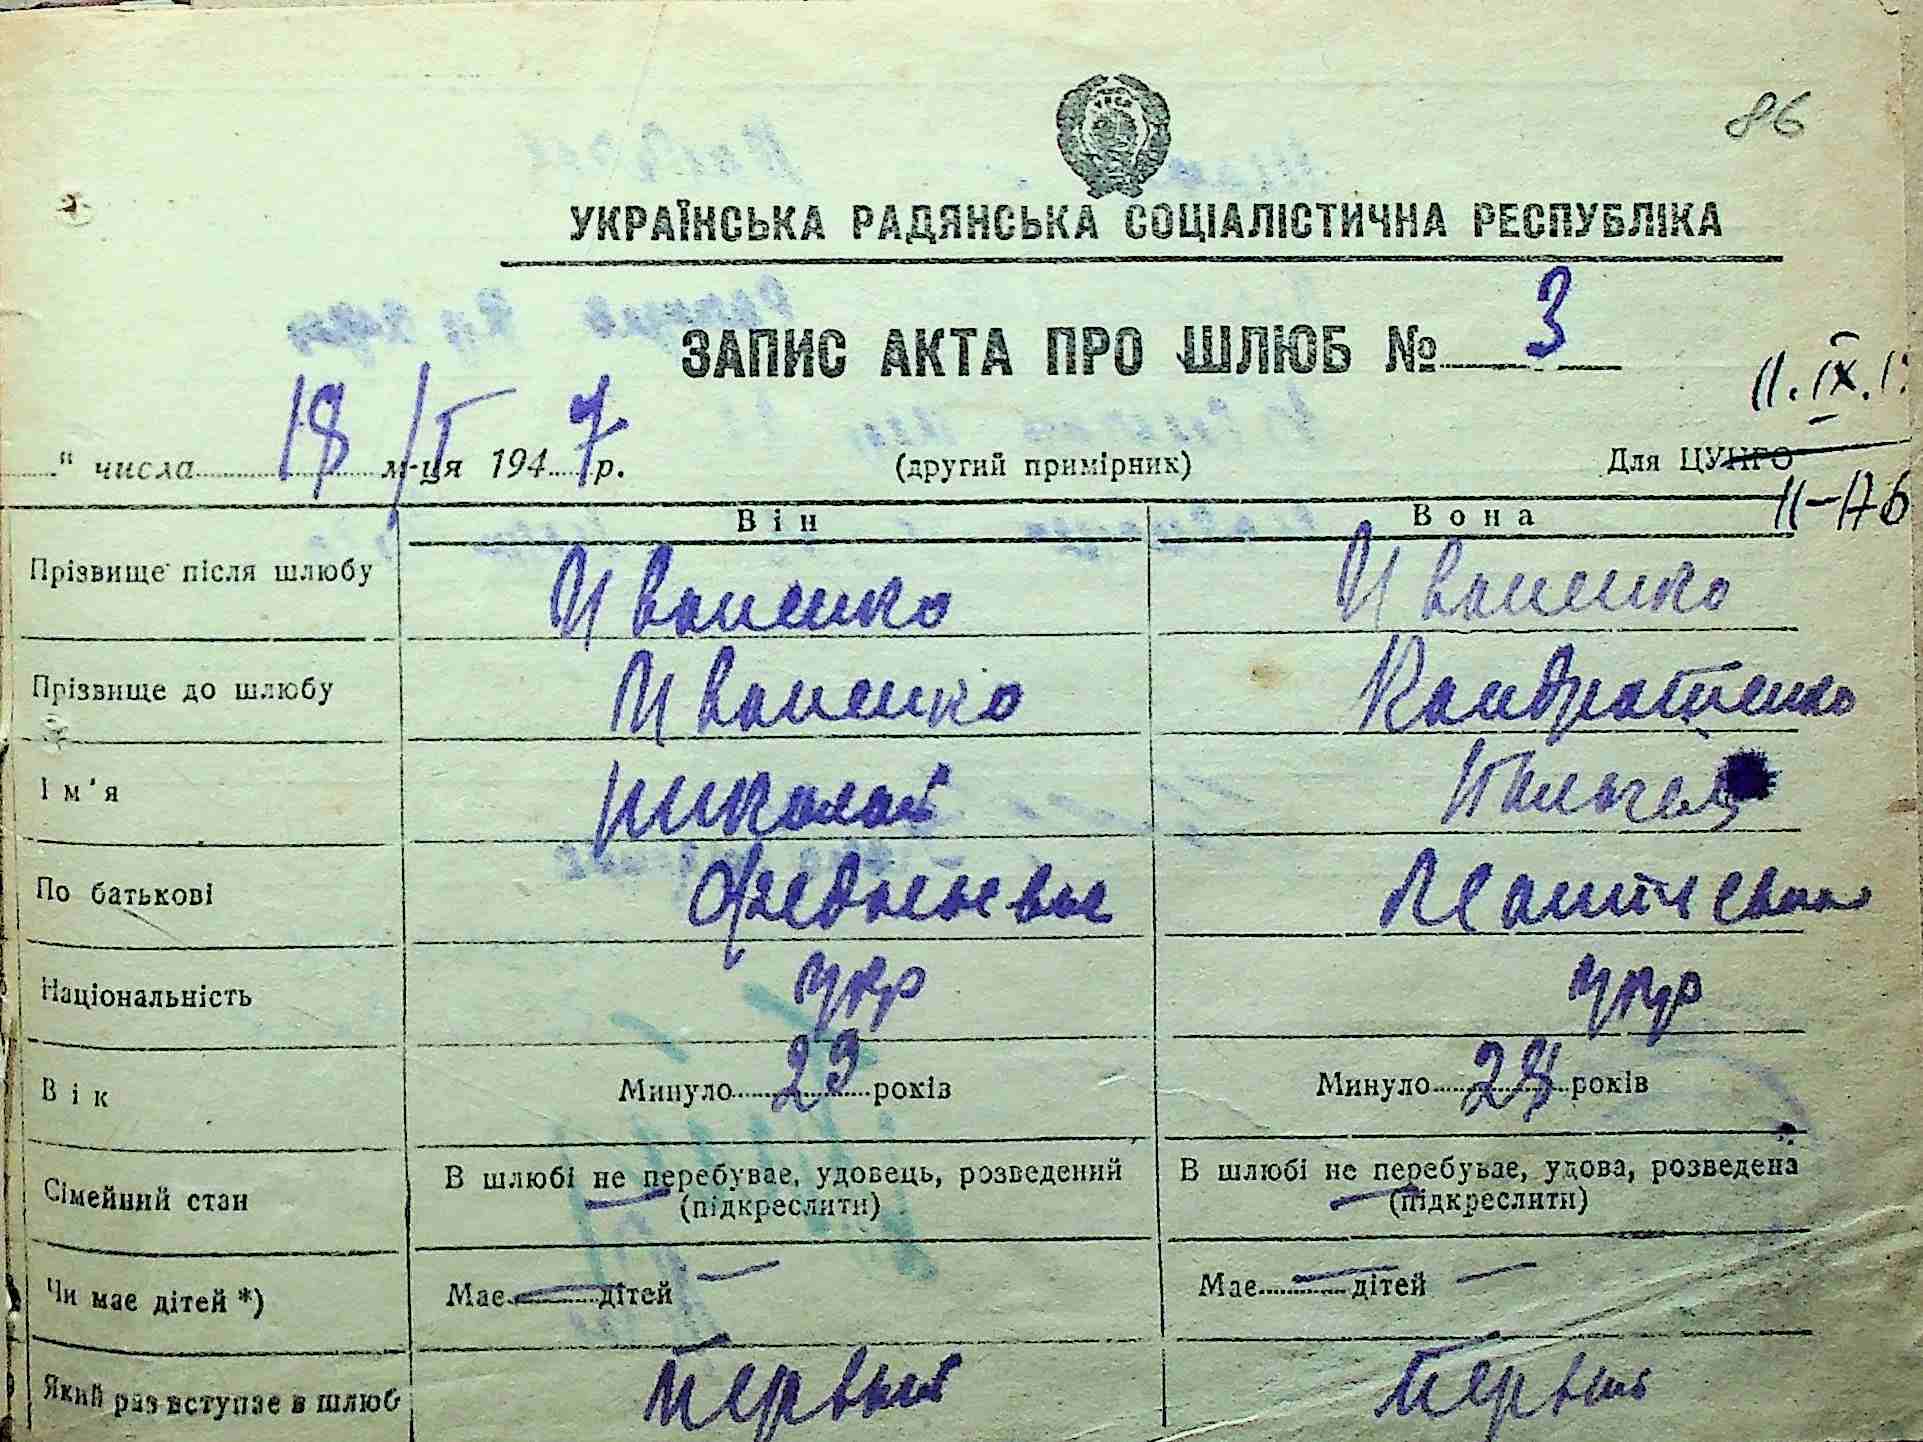 86
УКРАЇНСЬКА РАДЯНСЬКА СОЦІАЛІСТИЧНА РЕСПУБЛІКА
ЗАПИС АКТА ПРО ШЛЮБ № 3
11.IX.
" числа 18/I м-ця 1947 р. (другий примірник) Для ЦУНГО
Він Вона
Прізвище після шлюбу Иваненко Иваненко
Прізвище до шлюбу Иваненко Кандратенко
Ім'я Николай
По батькові
Національність укр укр
Вік Минуло 23 років Минуло 28 років
Сімейний стан В шлюбі не перебуває, удовець, розведений В шлюбі не перебуває, удова, розведена
(підкреслити) (підкреслити)
Чи має дітей *) Має — дітей — Має — дітей —
Який раз вступає в шлюб Первый Первый